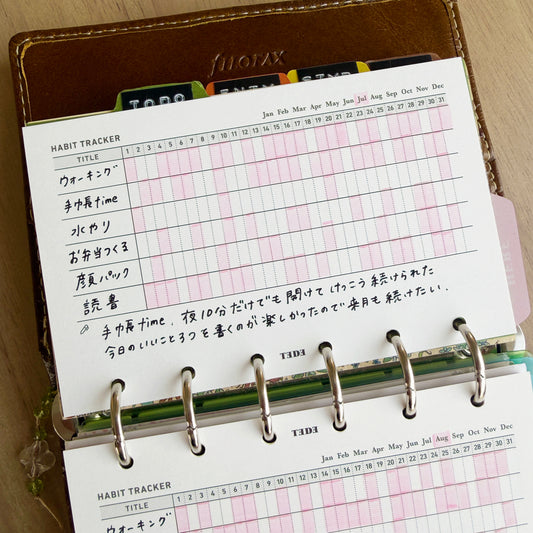 filofax
TODO
Jan Feb Mar Apr May Jun Jul Aug Sep Oct Nov Dec
HABIT TRACKER
TITLE 1 2 3 4 5 6 7 8 9 10 11 12 13 14 15 16 17 18 19 20 21 22 23 24 25 26 27 28 29 30 31
ウォーキング
手帳time
水やり
お弁当つくる
顔パック
読書
◎ 手帳time、夜10分だけでも開けてけっこう続けられた
今日のいいこと3つを書くのが楽しかったので来月も続けたい.
TEDE
TEDE
Jan Feb Mar Apr May Jun Jul Aug Sep Oct Nov Dec
HABIT TRACKER
TITLE 1 2 3 4 5 6 7 8 9 10 11 12 13 14 15 16 17 18 19 20 21 22 23 24 25 26 27 28 29 30 31
ウォーキング